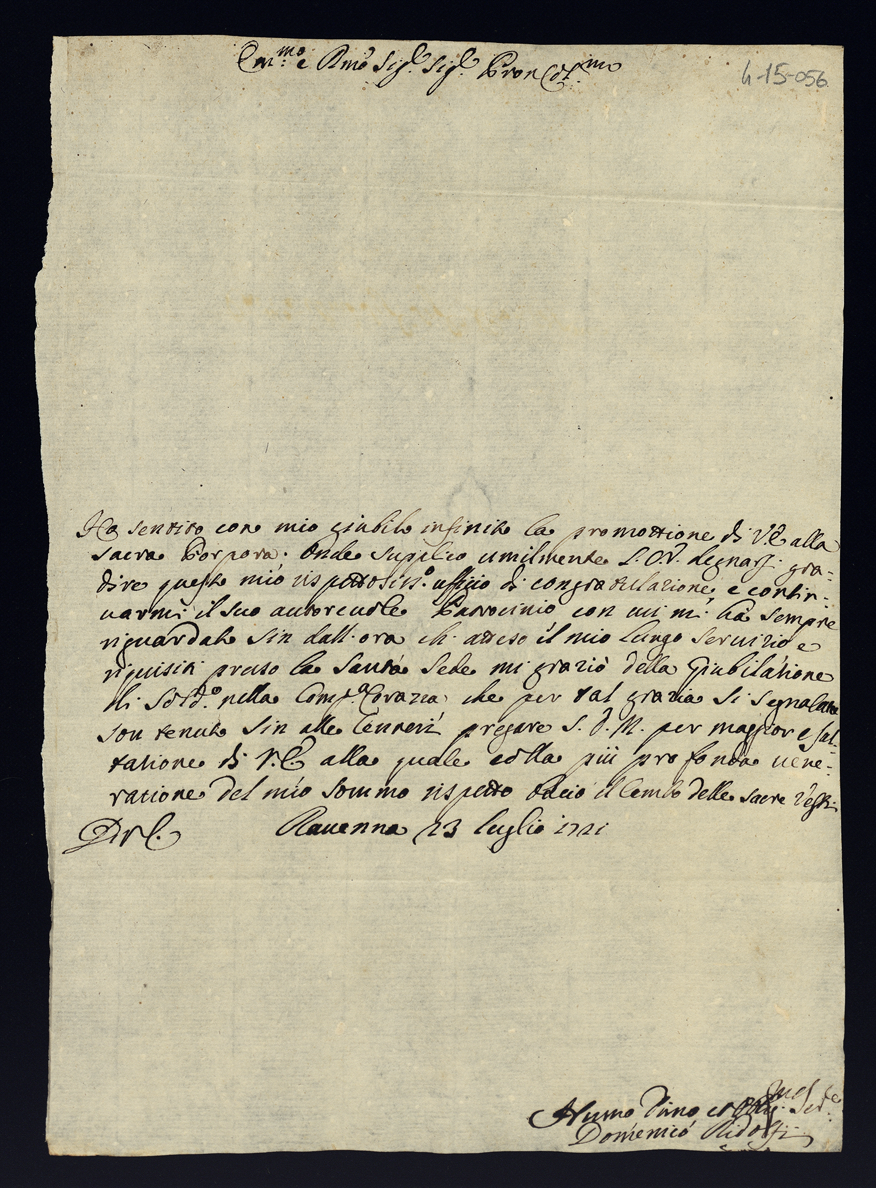 Em.mo e Rmo Sig.r Sig.r Pron Col.mo
4-15-056
Ho sentito con mio giubilo infinito la promottione di V.E. alla
sacra Porpora. Onde supplico umilmente degnarsi gra-
dire questo mio rispettosiss.o uffizio di congratulazione, e contin-
uarmi il suo autorevole Patrocinio con cui mi ha sempre
riguardato sin dall'ora ch. atteso il mio lungo servizio e
riquisiti presso la Santa Sede mi graziò della Giubilatione
di Sold.o nella Comp.a Corazza che per tal grazia si segnalata
son tenuto sin alle Cenneri pregare S. D. M. per maggior esal-
tatione di V.E. alla quale colla più profonda vene-
ratione del mio sommo rispetto bacio il Lembo delle sacre Vesti.
D.V.E. Ravenna 23 luglio 1721
Humo Dmo et Obblig.mo Ser.e
Domenico Ridolfi